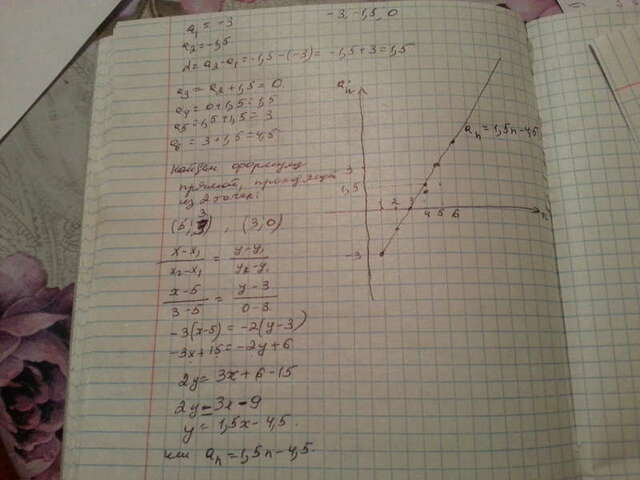 a₁ = -3
-3, -1,5, 0
a₂ = -1,5
d = a₂ - a₁ = -1,5 - (-3) = -1,5 + 3 = 1,5
a₃ = a₂ + 1,5 = 0
a₄ = 0 + 1,5 = 1,5
a₅ = 1,5 + 1,5 = 3
a₆ = 3 + 1,5 = 4,5
Найдем формулу
прямой, проходящей
из 2 точки:
(5, 3), (3, 0)
x-x₁/x₂-x₁ = y-y₁/y₂-y₁
x-5/3-5 = y-3/0-3
-3(x-5) = -2(y-3)
-3x+15 = -2y+6
2y = 3x+6-15
2y = 3x-9
y = 1,5x - 4,5.
или aₙ = 1,5n - 4,5
aₙ
aₙ = 1,5n - 4,5
3
1,5
1 2 3 4 5 6 n
-3